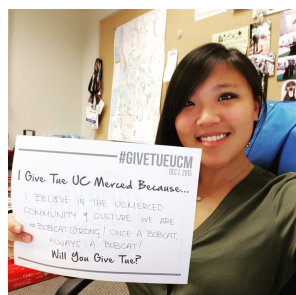 #GIVETUEUCM
DEC 1, 2015
I Give Tue UC Merced Because...
I BELIEVE IN THE UCMERCED
COMMUNITY & CULTURE. WE ARE
#BOBCATSTRONG! ONCE A BOBCAT,
ALWAYS A BOBCAT!
Will You Give Tue?